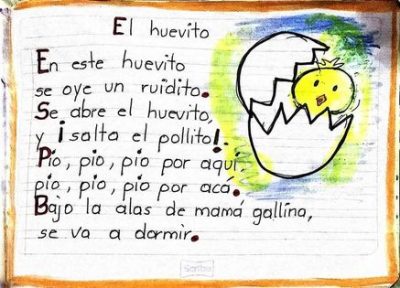 El huevito
En este huevito
se oye un ruidito.
Se abre el huevito,
y ¡salta el pollito!.
Pio, pio, pio por aquí,
pío, pio, pio por acá.
Bajo la alas de mamá gallina,
se va a dormir.
Scribe